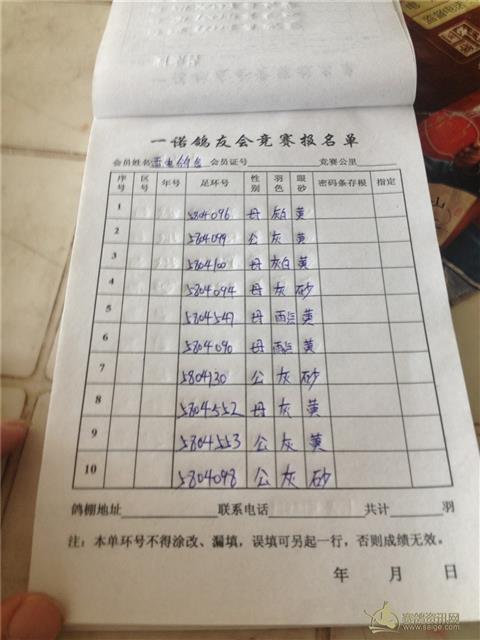 一诺鸽友会竞赛报名单
会员姓名 雷电鸽舍 会员证号 竞赛公里
序号 区号 年号 足环号 性别 羽色 眼砂 密码条存根 指定
1 5804096 母 灰白 黄
2 5804099 公 灰 黄
3 5804100 母 灰白 黄
4 5804094 母 灰 砂
5 5804547 母 黄
6 5804090 母 黄
7 5804130 公 灰 砂
8 5804552 母 灰 黄
9 5804553 公 灰 黄
10 5804098 公 灰 砂
鸽棚地址 联系电话 共计 羽
注：本单环号不得涂改、漏填，误填可另起一行，否则成绩无效。
年 月 日
赛鸽资讯网
www.saige.com